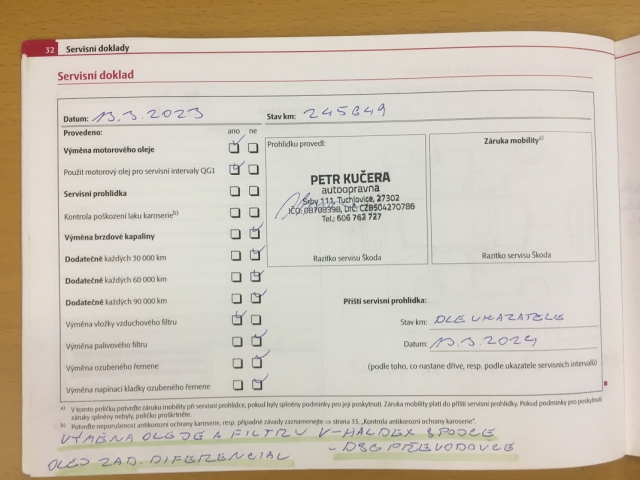 32 Servisní doklady
Servisní doklad
Datum: 13.3.2023 Stav km: 245649
Provedeno: ano ne
Výměna motorového oleje
Použit motorový olej pro servisní intervaly QG1
Servisní prohlídka
Kontrola poškození laku karoserie b)
Výměna brzdové kapaliny
Dodatečně každých 30 000 km
Dodatečně každých 60 000 km
Dodatečně každých 90 000 km
Výměna vložky vzduchového filtru
Výměna palivového filtru
Výměna ozubeného řemene
Výměna napínací kladky ozubeného řemene
Prohlídku provedl:
PETR KUČERA
autoopravna
Srby 111, Tuchlovice, 27302
IČO: 08708398, DIČ: CZ8504270786
Tel.: 606 762 727
Razítko servisu Škoda
Záruka mobility a)
Razítko servisu Škoda
Příští servisní prohlídka:
Stav km: DLE UKAZATELE
Datum: 13.3.2024
(podle toho, co nastane dříve, resp. podle ukazatele servisních intervalů)
a) V tomto políčku potvrďte záruku mobility při servisní prohlídce, pokud byly splněny podmínky pro její poskytnutí. Záruka mobility platí do příští servisní prohlídky. Pokud podmínky pro poskytnutí
záruky splněny nebyly, políčko proškrtněte.
b) Potvrďte neporušenost antikorozní ochrany karoserie, resp. případné závady zaznamenejte ⇒ strana 33, „Kontrola antikorozní ochrany karoserie".
VÝMĚNA OLEJE A FILTRU V-HALDEX SPOJCE
- DSG PŘEVODOVCE
OLEJ ZAD. DIFERENCIAL